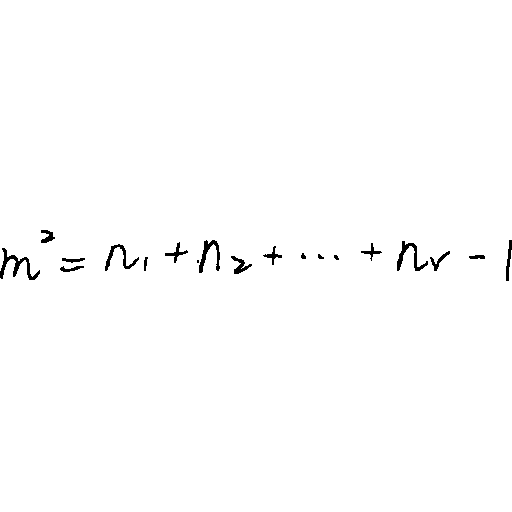 m² = n₁ + n₂ + ⋯ + nᵣ - 1